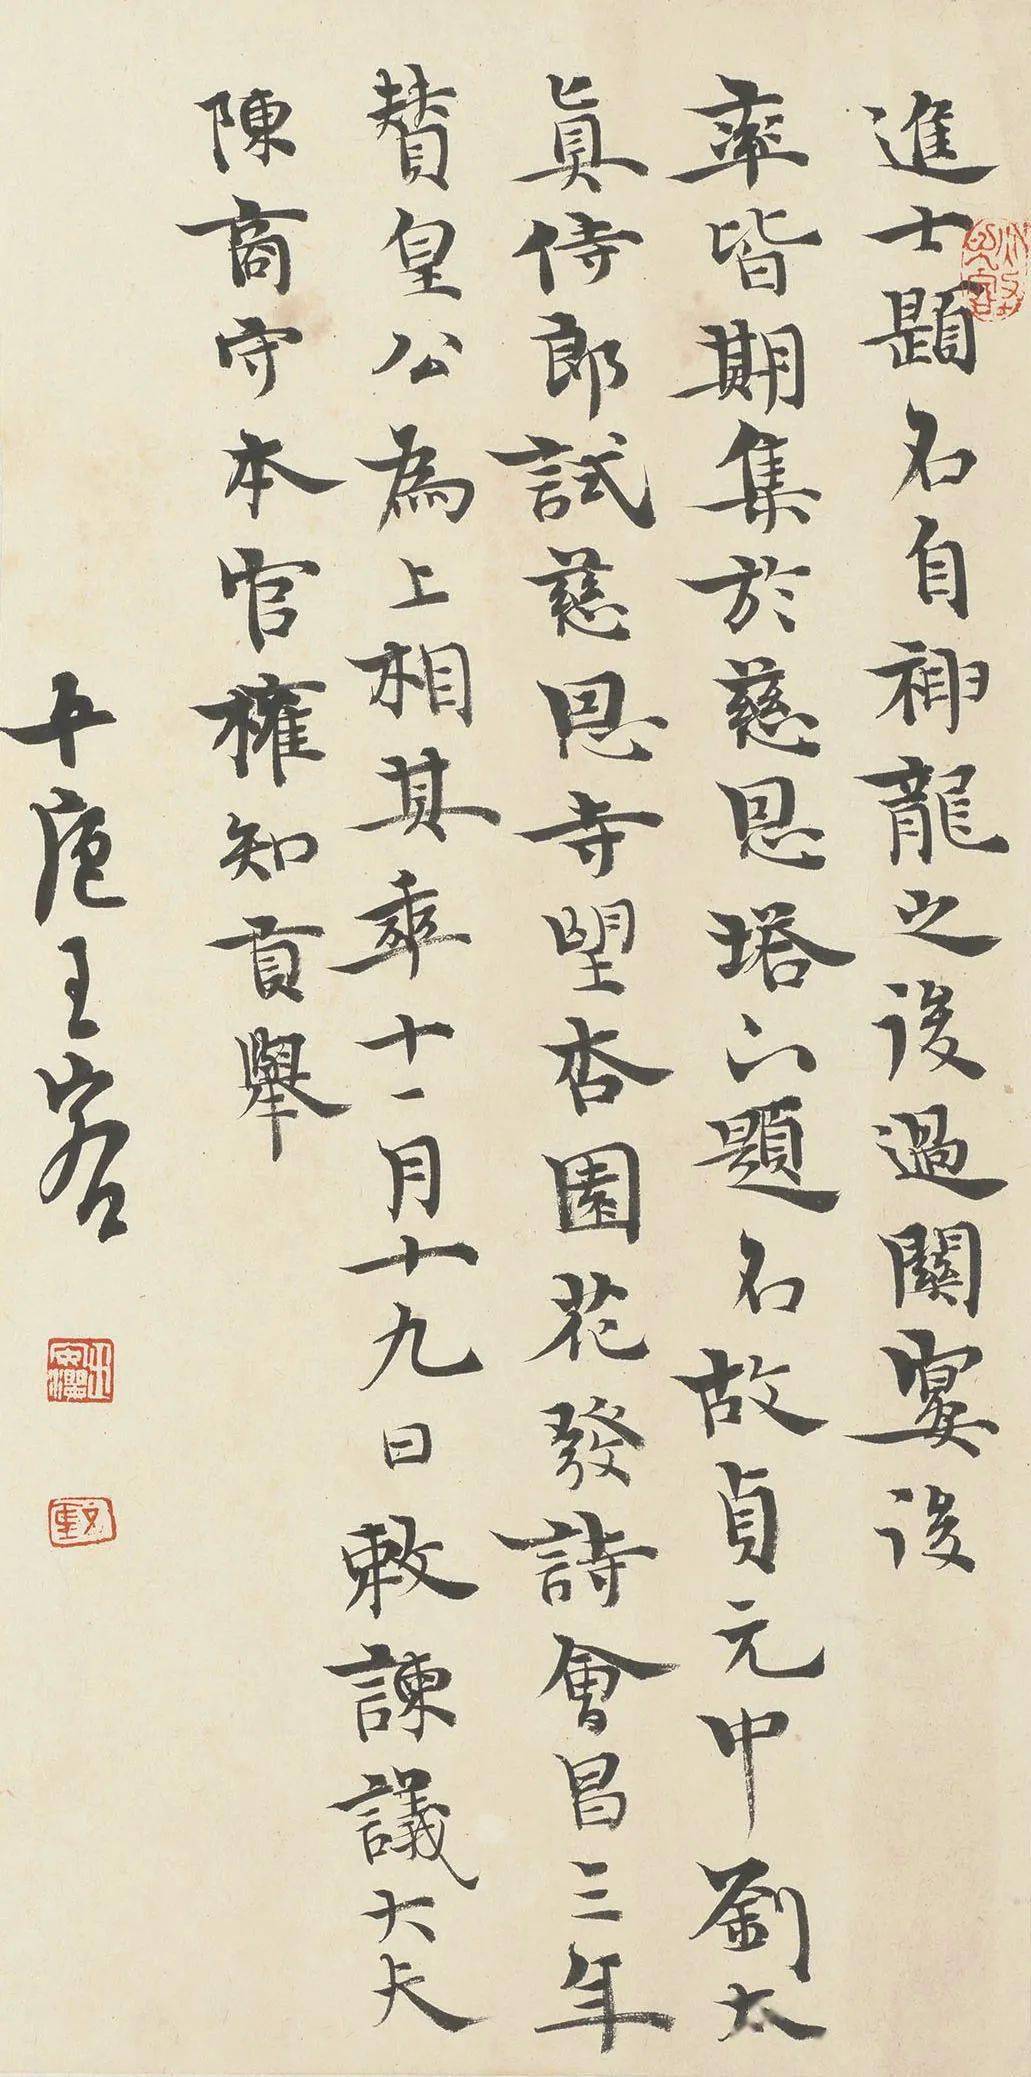 進士題名自神龍之後過關宴後
率皆期集於慈恩塔下題名故貞元中劉太
真侍郎試慈恩寺望杏園花發詩會昌三年
贊皇公為上相其年十一月十九日敕諫議大夫
陳商守本官權知貢舉
王容